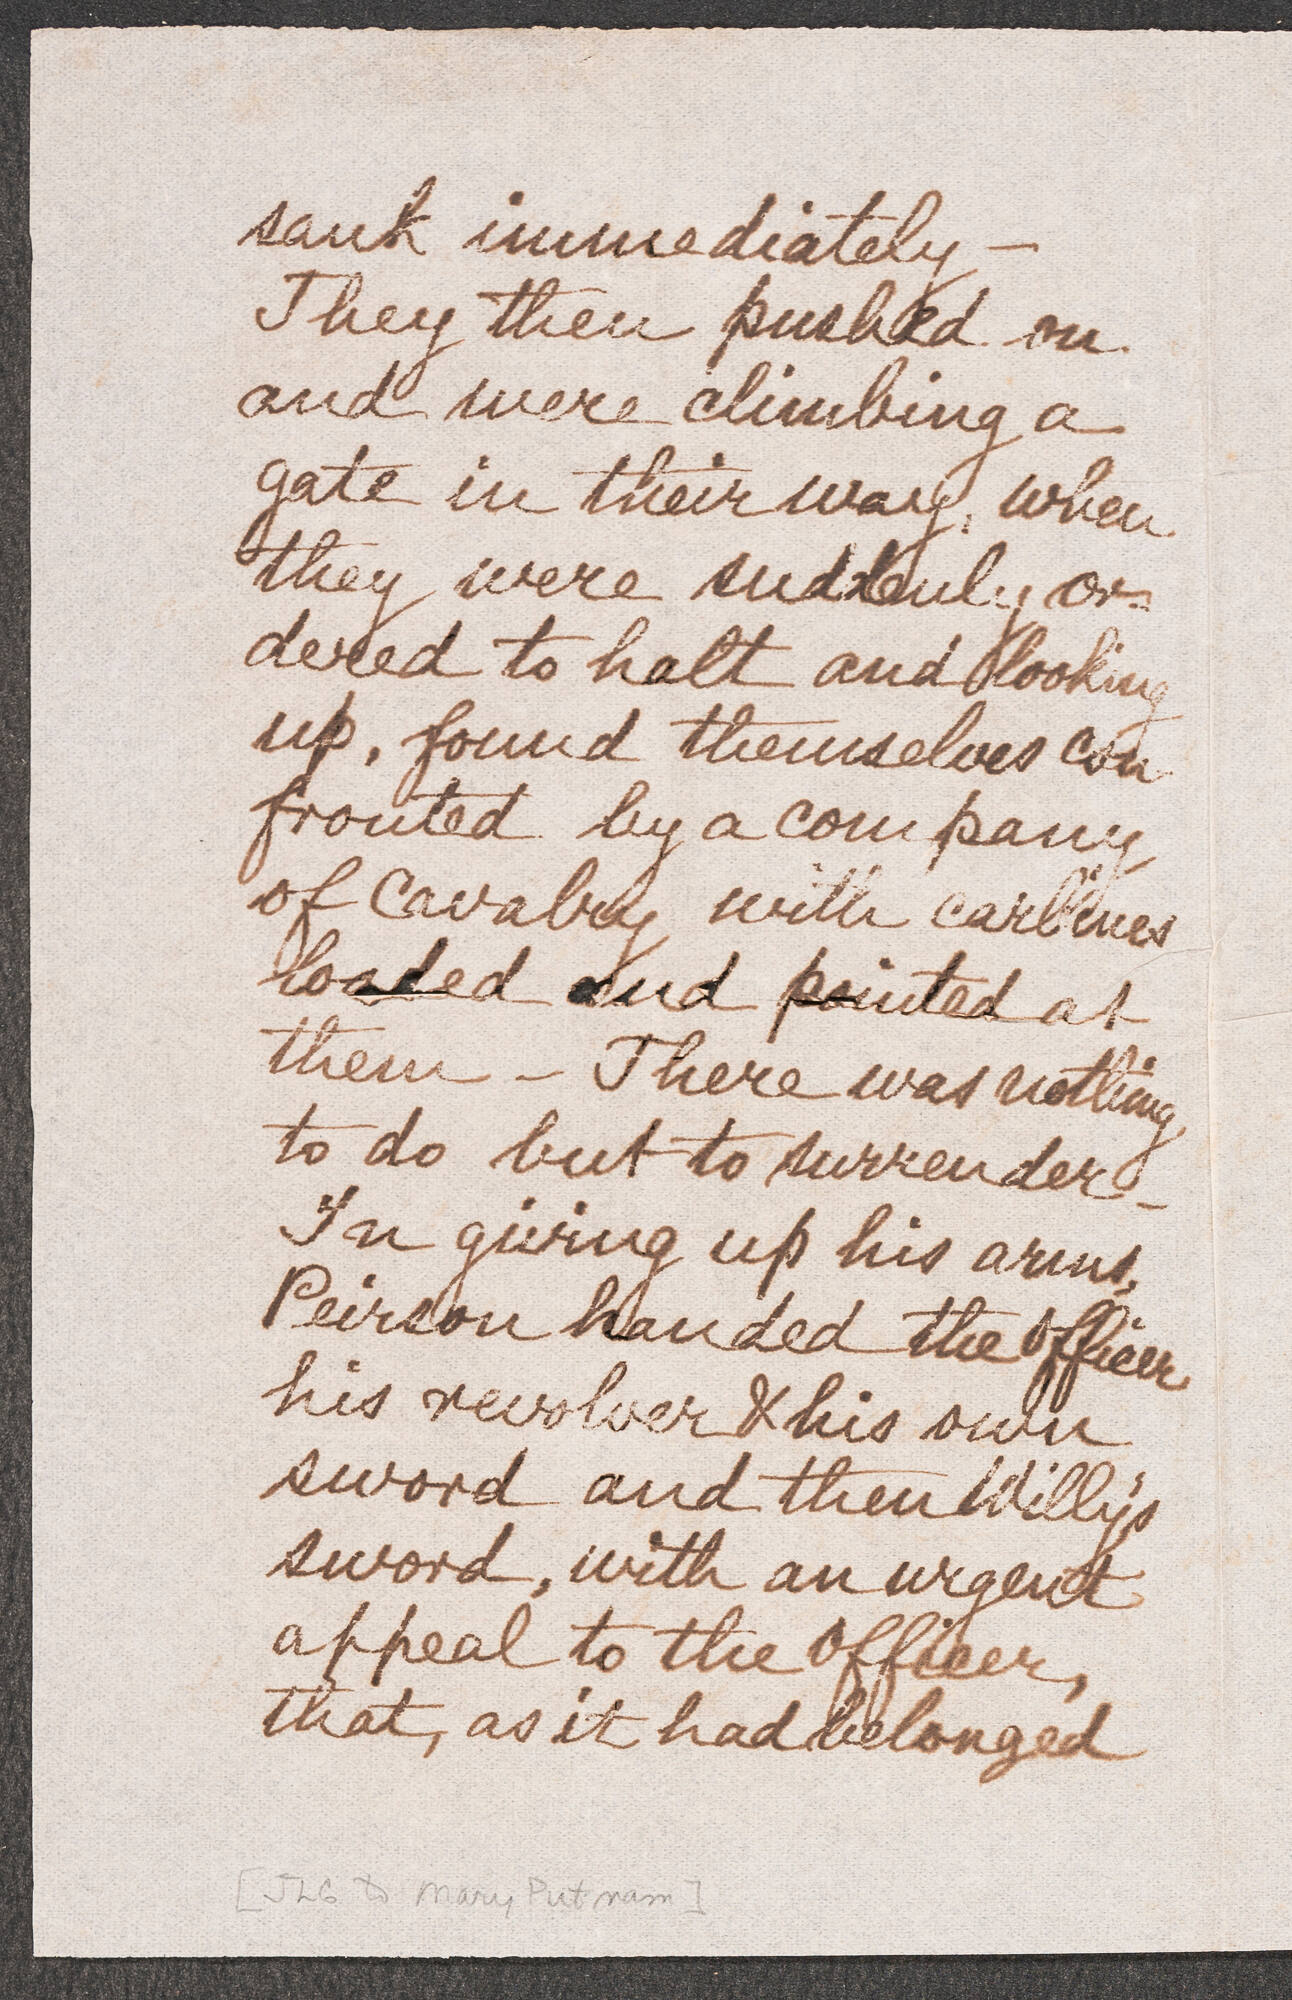 sank immediately —
They then pushed on
and were climbing a
gate in their way, when
they were suddenly or-
dered to halt and looking
up, found themselves con
fronted by a company
of Cavalry with carbines
loaded and pointed at
them — There was nothing
to do but to surrender —
In giving up his arms,
Peirson handed the officer
his revolver & his own
sword and then Willy's
sword, with an urgent
appeal to the officer,
that, as it had belonged
[JLG to Mary Putnam]